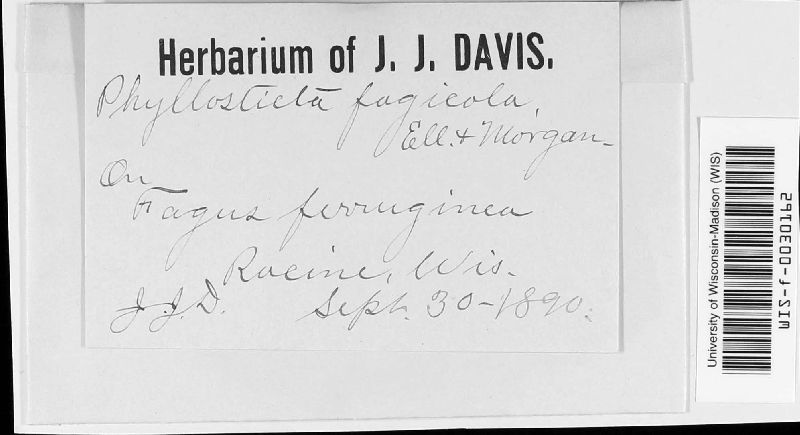 Herbarium of J. J. DAVIS.
Phyllosticta fagicola,
Ell. & Morgan-
On
Fagus ferruginea
Racine, Wis.
J. J. D. Sept. 30-1890.
University of Wisconsin-Madison (WIS)
WIS-f-0030162